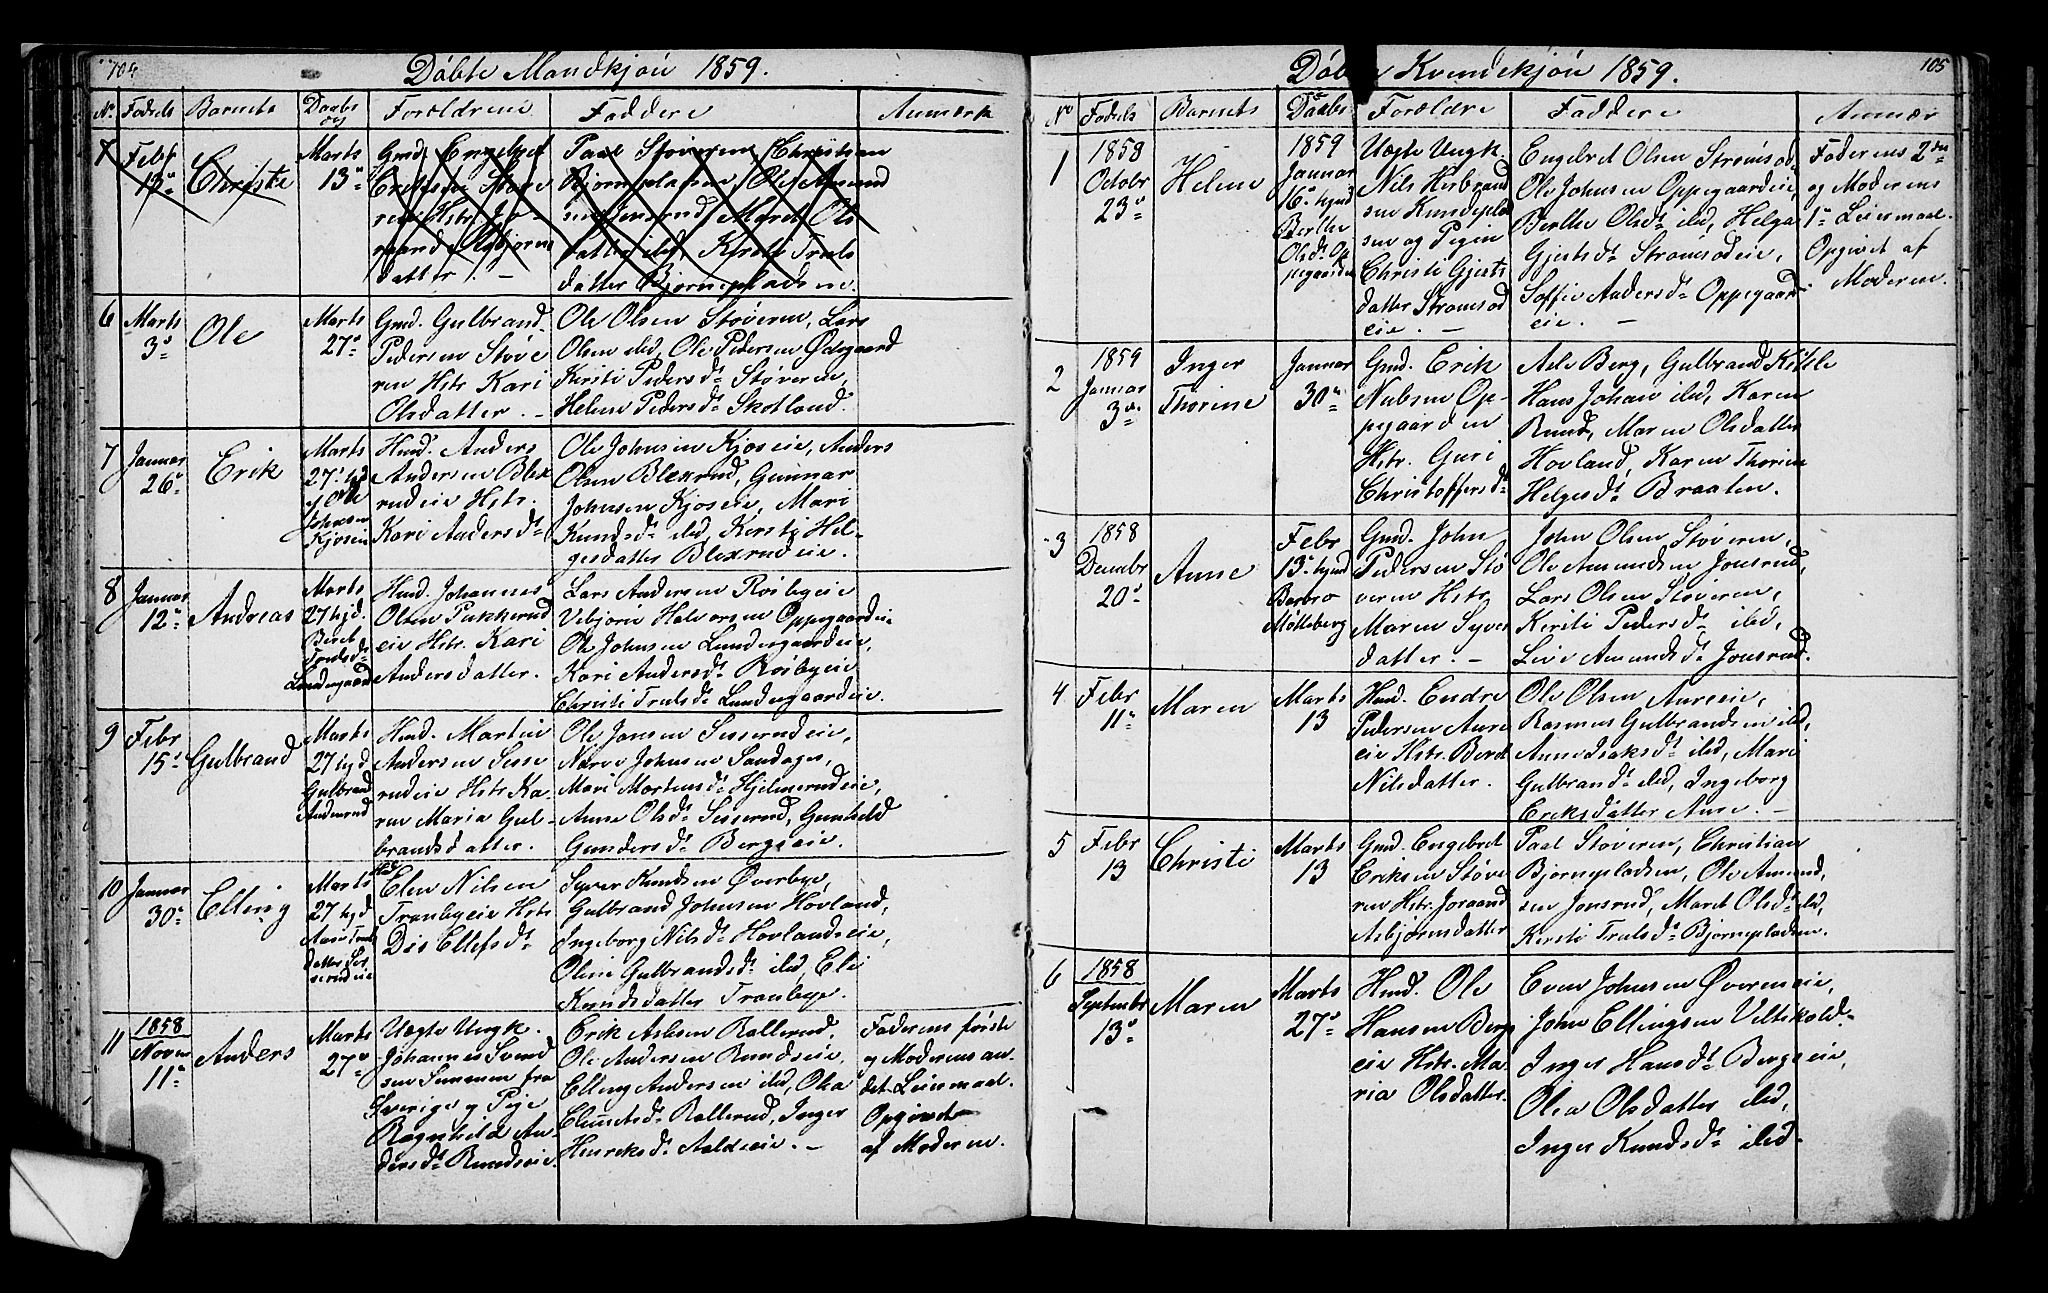 104
Döbte Mandkjön 1859.
No. Fødsels Barnets Daabs Forældrene Faddere Anmærk
Febr 13de
Christi
Marts 13de
Gmd. Engebret
Eriksen Støve
ren Hstr. Jo-
raand Asbjørns
datter. –
Paal Støveren, Christian
Bjørnepladsen, Ole Amund
sen Jonsrud, Maret Ols
datter ibd, Kirsti Truls
datter Bjørnepladsene.
6
Marts
3de
Ole
Marts
27de
Gmd. Gulbrand
Pedersen Støve
ren Hstr. Kari
Olsdatter. –
Ole Olsen Støveren, Lars
Olsen ibd, Ole Pedersen Ødegaard
Kirsti Pedersdt. Støveren,
Helene Pedersdt. Skotland.
7
Januar
26de
Erik
Marts
27de hjd
af Ole
Johnsen
Kjoseie
Husd. Anders
Andersen Blex
rudeie Hstr.
Kari Andersdt.
Ole Johnsen Kjoseie, Anders
Olsen Blexrud, Gunnar
Johnsen Kjoseie, Mari
Knudsdt. ibd, Kersti Hel-
gesdatter Blexrudeie.
8
Januar
12de
Andreas
Marts
27 hjd.
Beret
Trulsdt.
Lundegaard
Husd. Johannes
Olsen Pukkerud
eie Hstr. Kari
Andersdatter.
Lars Andersen Røsbyeie
Vebjørn Halvorsen Oppegaardeie
Ole Johnsen Lundegaardeie,
Kari Andersdt. Røsbyeie
Christi Trulsdt. Lundegaardeie.
9
Febr
15de
Gulbrand
Marts
27 hjd
Gulbrand
Husd. Martin
Andersen Sesse
rudeie Hstr. Ka-
ren Maria Gul-
brandsdatter.
Ole Jansen Sesserudeie,
Narve Johnsen Sandager,
Mari Mortensdt. Hjelmerudeie,
Anne Olsdt. Sesserud, Gunhild
Gundersdt. Bergseie.
10
Januar
30de
Elling
Marts
27 hjd
Anne Truls
datter Ses
serudeie
Husd
Elen Nilsen
Tranbyeie Hstr
Dis Ellefsdt.
Syver Knudsen Øverbye,
Gulbrand Johnsen Hovland,
Ingeborg Nilsdt. Hovlandseie,
Oline Gulbrandsdt. ibd, Eli
Knudsdatter Tranbye.
11
1858
Novem
11de
Anders
Marts
27de
Uægte Ungk.
Johannes Svend
sen fra
Sverige og Pige
Ragnhild An-
dersdt. Rundseie.
Erik Aslesen Rallerud,
Ole Andersen Rundseie,
Elling Andersen ibd, Olea
Clemetsdt. Rallerud, Inger
Henriksdt. Asldieie. –
Faderens første
og Moderens an-
det Leiermaal.
Opgivet
af Moderen.
105
Döbte Kvindekjön 1859.
No Fødsels Barnets Daabs Forældre Faddere Anmær
1
1858
Octobr
23de
Helene
1859
Januar
16de hjemd
Berthe
Olsdt. Op
pegaarden
Uægte Ungk.
Nils Herbrand
sen Knudsplad
sen og Pigen
Christi Gjerts
datter Strømsod
eie. –
Engebret Olsen Strømsod,
Ole Johnsen Oppegaardeie,
Berthe Olsdt. ibd, Helga
Gjertsdt. Strømsodeie,
Soffie Andersdt. Oppegaard
eie. –
Faderens 2det
og Moderens
1ste Leiermaal.
Opgivet af
Moderen.
2
1859
Januar
3de
Inger
Thorine
Januar
30de
Gmd. Erik
Nubsen Op-
pegaarden
Hstr. Guri
Christoffersdt.
Asle Berg, Gulbrand Kittle
Hans Johan ibd, Karen
Rund, Maren Olsdatter
Hovland, Karen Thorine
Helgesdt. Braaten.
3
1858
Decembr
20de
Anne
Febr
13de hjemd
Barbro
Møtteberg
Gmd. John
Pedersen Stø
veren Hstr
Maren Syver
datter. –
John Olsen Støveren,
Ole Amundsen Jonsrud,
Lars Olsen Støveren,
Kirsti Pedersdt. ibd,
Live Amundsdt. Jonsrud.
4
Febr
11de
Maren
Marts
13
Husd. Endre
Pedersen Aure
eie Hstr. Beret
Nilsdatter.
Ole Olsen Aureeie,
Rasmus Gulbrandsen ibd,
Anne Isaksdt. ibd, Mari
Gulbrandsdt. ibd, Ingeborg
Eriksdatter Aure. –
5
Febr
13
Christi
Marts
13
Gmd. Engebret
Eriksen Støve
ren Hstr. Joraand
Asbjørnsdatter
Paal Støveren, Christian
Bjørnepladsen, Ole Amund,
sen Jonsrud, Maret Olsdt. ibd,
Kersti Trulsdt. Bjørnepladsen.
6
1858
Septembr
13de
Maren
Marts
27de
Husd. Ole
Hansen Berg
eie Hstr. Ma-
ria Olsdatter.
Even Johnsen Øvreneie,
John Ellingsen Veltikold,
Inger Hansdt. Bergseie,
Olea Olsdatter ibd,
Inger Knudsdt. ibd.